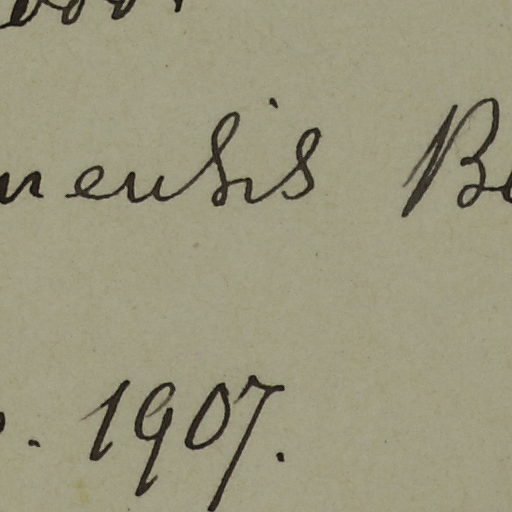 nensis Be
. 1907.